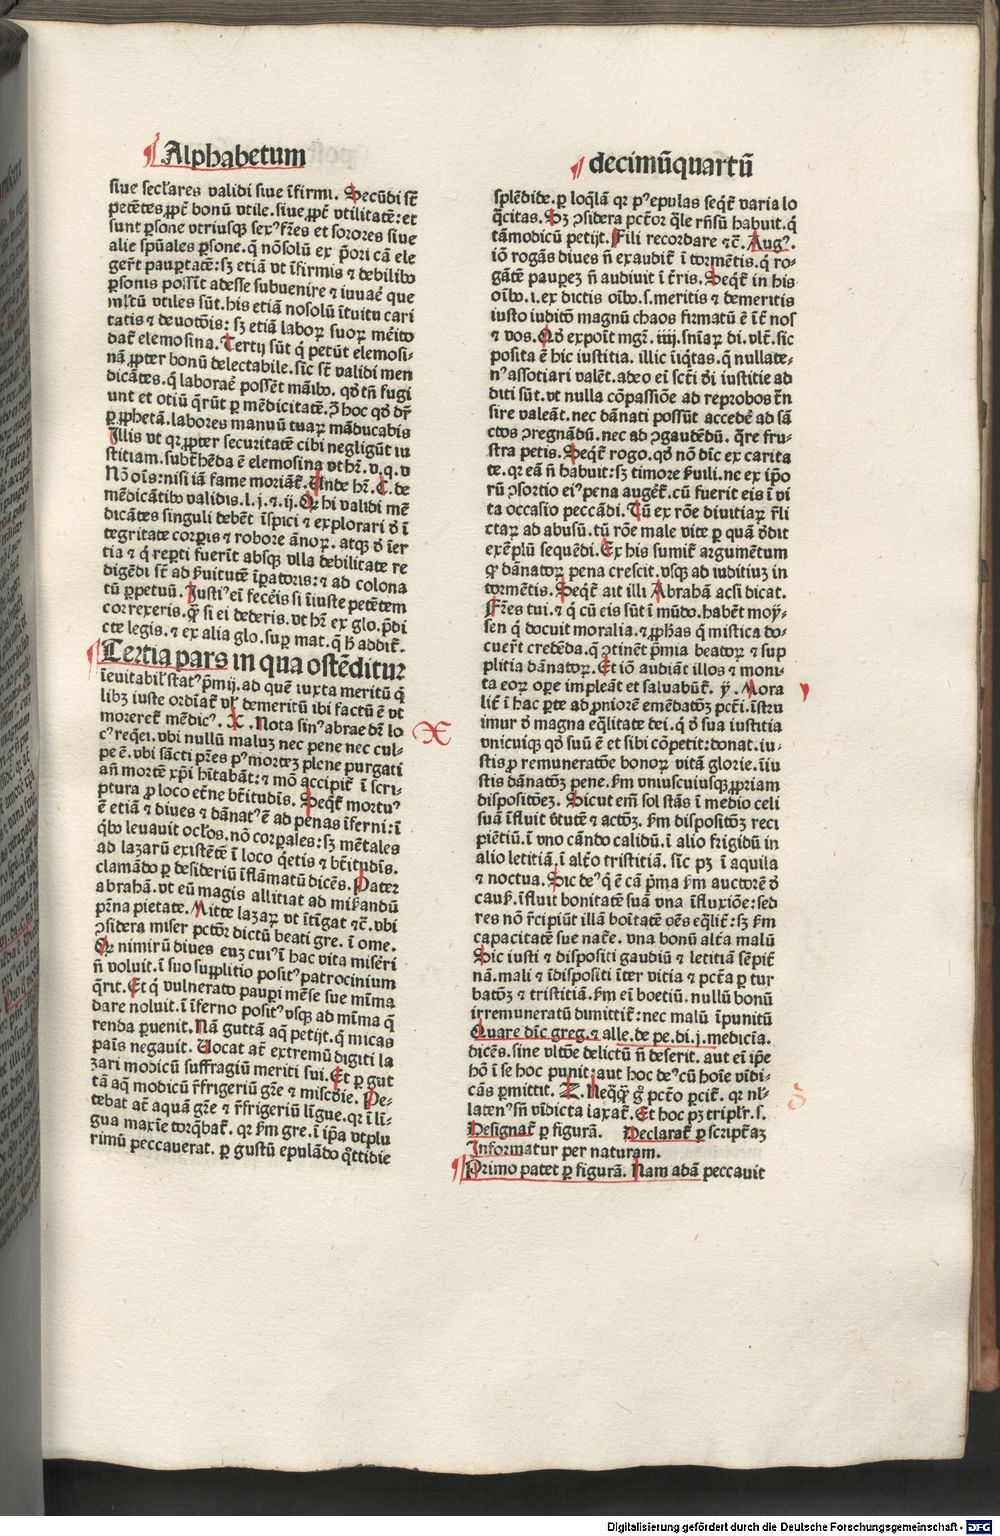 Alphabetum
siue seclares validi siue ĩfirmi. Secũdi sũt
petẽtes ꝓpt̃ bonũ vtile. siue ꝓpt̃ vtilitatẽ: et
sunt ꝑsone vtriusqꝫ sexꝰ fr̃es et sorores siue
alie spũales ꝑsone. q̃ nõsolũ ex p̃ori cã ele
ger̃t pauꝑtatẽ: sꝫ etiã vt ĩfirmis ⁊ debilibꝰ
ꝑsonis possĩt adesse subuenire ⁊ iuuare que
ml̃tũ vtiles sũt. his etiã nosolũ ĩtuitu cari
tatis ⁊ deuotõis: sꝫ etiã laborꝝ suorꝝ mẽito
dat̃ elemosina. Tertij sũt q̃ petũt elemosi-
nã ꝓpter bonũ delectabile. sic̃ st̃ validi men
dicãtes. q̃ laborare possẽt mãibꝰ. qď tñ fugi
unt et otiũ q̃rũt ꝑ mẽdicitatẽ. Ↄ̃ hoc qď dr̃
ꝑ ꝓphetã. labores manuũ tuarꝝ mãducabis
Illis vt qꝛ ꝓpter securitatẽ cibi negligũt iu
stitiam. subt̃hẽda ẽ elemosina vt hr̃. v. q. v
Nõ oĩs: nisi iã fame moriãt̃. Unde hr̃. C. de
mẽdicãtibꝰ validis. l. j. ⁊ ij. Qꝛ hi validi mẽ
dicãtes singuli debẽt ĩspici ⁊ explorari ď ĩ
tegritate corꝑis ⁊ robore ãnorꝝ. atqꝫ ď ĩer
tia ⁊ q̃ reꝑti fuerĩt absqꝫ vlla debilitate re
digẽdi st̃ ad ẜuitutẽ ĩꝑatoris: ⁊ ad colona
tũ ꝑpetuũ. Justiꝰ eĩ fecẽis si ĩiuste petẽtem
correxeris. q̃ꝫ si ei dederis. vt hr̃ ex glo. p̃di
cte legis. ⁊ ex alia glo. suꝑ mat. q̃ h̃ addit̃.
Tertia pars in qua ostẽditur
ĩeuitabil̃ statꝰ p̃mij. ad quẽ iuxta meritũ q̃
libꝫ iuste ordĩat̃ vl̃ demeritũ ibi factũ ẽ vt
moreret̃ mẽdicꝰ. X. Nota sinꝰ abrae dr̃ lo
cꝰ req̃ei. vbi nullũ malũ nec pene nec cul-
pe ẽ. vbi sãcti pr̃es pꝰ mortẽ plene purgati
añ mortẽ xp̃i hĩtabãt: ⁊ mõ accipit̃ ĩ scri-
ptura ꝓ loco et̃ne bt̃itudĩs. Seqt̃ mortuꝰ
ẽ etiã ⁊ diues ⁊ dãnatꝰ ẽ ad penas ĩferni: ĩ
q̃bꝰ leuauit ocl̃os. nõ corꝑales: sꝫ mẽtales
ad lazarũ existẽtẽ ĩ loco q̃etis ⁊ bt̃itudĩs.
clamãdo ꝑ desideriũ ĩflãmatũ dicẽs. Pater
abrahã. vt eũ magis alliciat ad miẜandũ
pr̃na pietate. Mitte lazarꝝ vt ĩtĩgat ⁊c̃. vbi
ↄsidera miser pctõr dictũ beati gre. ĩ ome.
Qꝛ nimirũ diues euꝫ cuiꝰ ĩ hac vita misẽri
ñ voluit. ĩ suo supplitio positꝰ patrocinium
q̃rit. Et q̃ vulnerato pauꝑi mẽse sue mĩma
dare noluit. ĩ ĩferno positꝰ vsqꝫ ad mĩma q̃
renda ꝑuenit. Nã guttã aq̃ petijt. q̃ micas
paĩs negauit. Uocat at̃ extremũ digiti la
zari modicũ suffragiũ meriti sui. Et ꝑ gut
tã aq̃ modicũ r̃frigeriũ gr̃e ⁊ miscđie. Pe-
tebat at̃ aquã gr̃e ⁊ r̃frigeriũ lĩgue. qꝛ ĩ lĩ-
gua maxĩe torq̃bat̃. qꝛ ẜm gre. ĩ ip̃a vtplu
rimũ peccauerat. ꝑ gustũ epulãdo q̃ttidie
decimũquartũ
splẽdide. ꝑ loq̃lã qꝛ pꝰ epulas seqt̃ varia lo
q̃citas. Sꝫ ↄsidera pct̃or q̃le rñsũ habuit. q̃
tãmodicũ petijt. Fili recordare ⁊c̃. Augꝰ.
iõ rogãs diues ñ exaudit̃ ĩ tormẽtis. q̃ ro-
gãtẽ pauꝑeꝫ ñ audiuit ĩ t̃ris. Seqt̃ in his
oĩbꝰ. i. ex dictis oĩbꝰ. s. meritis ⁊ demeritis
iusto iuditõ magnũ chaos firmatũ ẽ ĩt̃ nos
⁊ vos. Qď expoĩt mgr̃. iiij. snĩarꝝ di. vlt̃. sic
posita ẽ hic iustitia. illic ĩiq̃tas. q̃ nullate-
nꝰ assotiari valẽt. adeo eĩ sct̃i ďi iustitie ad
diti sũt. vt nulla cõpassiõe ad reprobos t̃n
sire valeãt. nec dãnati possũt accedẽ ad sã
ctos ↄregnãdũ. nec ad ↄgaudẽdũ. q̃re fru-
stra petis. Seqt̃ rogo. qď nõ dĩc ex carita
te. qꝛ eã ñ habuit: sꝫ timore ẜuili. ne ex ip̃o
rũ ↄsortio eiꝰ pena auget̃. cũ fuerit eis ĩ vi
ta occasio peccãdi. Tũ ex rõe diuitiarꝝ r̃li
ctarꝝ ad abusũ. tũ rõe male vite ꝑ quã ďdit
exẽplũ sequẽdi. Ex his sumit̃ argumẽtum
ꝙ dãnatorꝝ pena crescit. vsqꝫ ad iuditiuꝫ in
tormẽtis. Seqt̃ ait illi Abrahã acsi dicat.
Fr̃es tui. ⁊ q̃ cũ eis sũt ĩ mũdo. habẽt moẏ-
sen q̃ docuit moralia. ⁊ ꝓphas q̃ mistica do-
cuer̃t credẽda. q̃ ↄtinẽt p̃mia beatorꝝ ⁊ sup
plitia dãnatorꝝ. Et iõ audiãt illos ⁊ moni-
ta eorꝝ oꝑe impleãt et saluabũt̃. ẏ. Mora
lit̃ ĩ hac ꝑte ad ꝓniorẽ emẽdatõꝫ pct̃i. ĩstru
imur ď magna eq̃litate dei. q̃ ď sua iustitia
vnicuiqꝫ qď suũ ẽ et sibi cõpetit: donat. iu-
stis ꝓ remuneratõe bonorꝝ vitã glorie. ĩiu
stis dãnatõꝫ pene. ẜm vniuscuiusqꝫ ꝓpriam
dispositõeꝫ. Sicut em̃ sol stãs ĩ medio celi
suã ĩfluit v̓tutẽ ⁊ actõꝫ. ẜm dispositõꝫ reci
piẽtiũ. ĩ vno cãndo calidũ. ĩ alio frigidũ in
alio letitiã. ĩ alt̃o tristitiã. sic̃ pꝫ ĩ aquila
⁊ noctua. Sic deꝰ q̃ ẽ cã p̃ma ẜm auctorẽ ď
cauẜ. ĩfluit bonitatẽ suã vna ĩfluxiõe: sed
res nõ r̃cipiũt illã boĩtatẽ oẽs eq̃lit̃: sꝫ ẜm
capacitatẽ sue nat̃e. vna bonũ alt̃a malũ
Sic iusti ⁊ dispositi gaudiũ ⁊ letitiã sẽpit̃
nã. mali ⁊ ĩdispositi ĩter vitia ⁊ pct̃a ꝑ tur
batõꝫ ⁊ tristitiã. ẜm eĩ boetiũ. nullũ bonũ
irremuneratũ dimittit̃: nec malũ ĩpunitũ
Quare dĩc greg. ⁊ alle. de pe. di. j. medicĩa.
dicẽs. sine vltõe delictũ ñ deserit. aut eĩ ip̃e
hõ ĩ se hoc punit: aut hoc deꝰ cũ hoĩe vĩdi-
cãs ꝑmittit. Z. Neq̃qꝫ g̃ pct̃o ꝑcit̃. qꝛ nl̃-
latenꝰ sñ vĩdicta laxat̃. Et hoc pꝫ triplr̃. s.
Designat̃ ꝑ figurã. Declarat̃ ꝑ script̃aꝫ
Informatur per naturam.
Primo patet ꝑ figurã. Nam adã peccauit
X
y
Digitalisierung gefördert durch die Deutsche Forschungsgemeinschaft - DFG